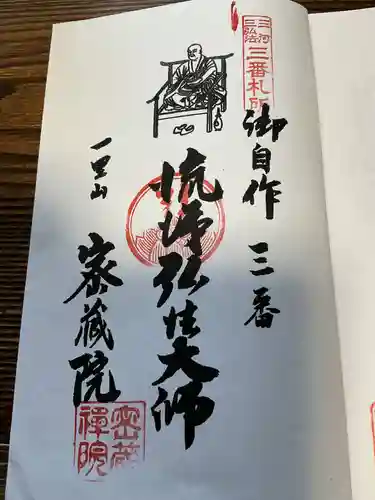 三河三弘法
三番札所
御自作 三番
流涕弘法大師
一里山
密蔵院
密蔵禅院